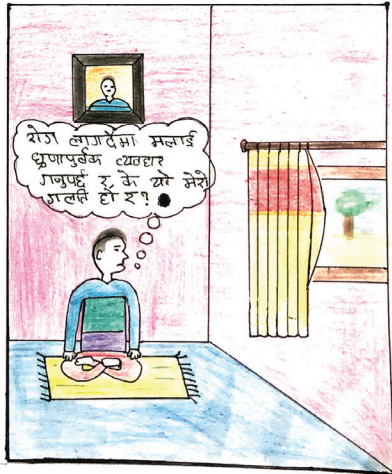 रोग लाग्दैमा मलाई
घृणापुर्वक व्यवहार
गनुपर्छ र के यो मेरो
गलति हो र?